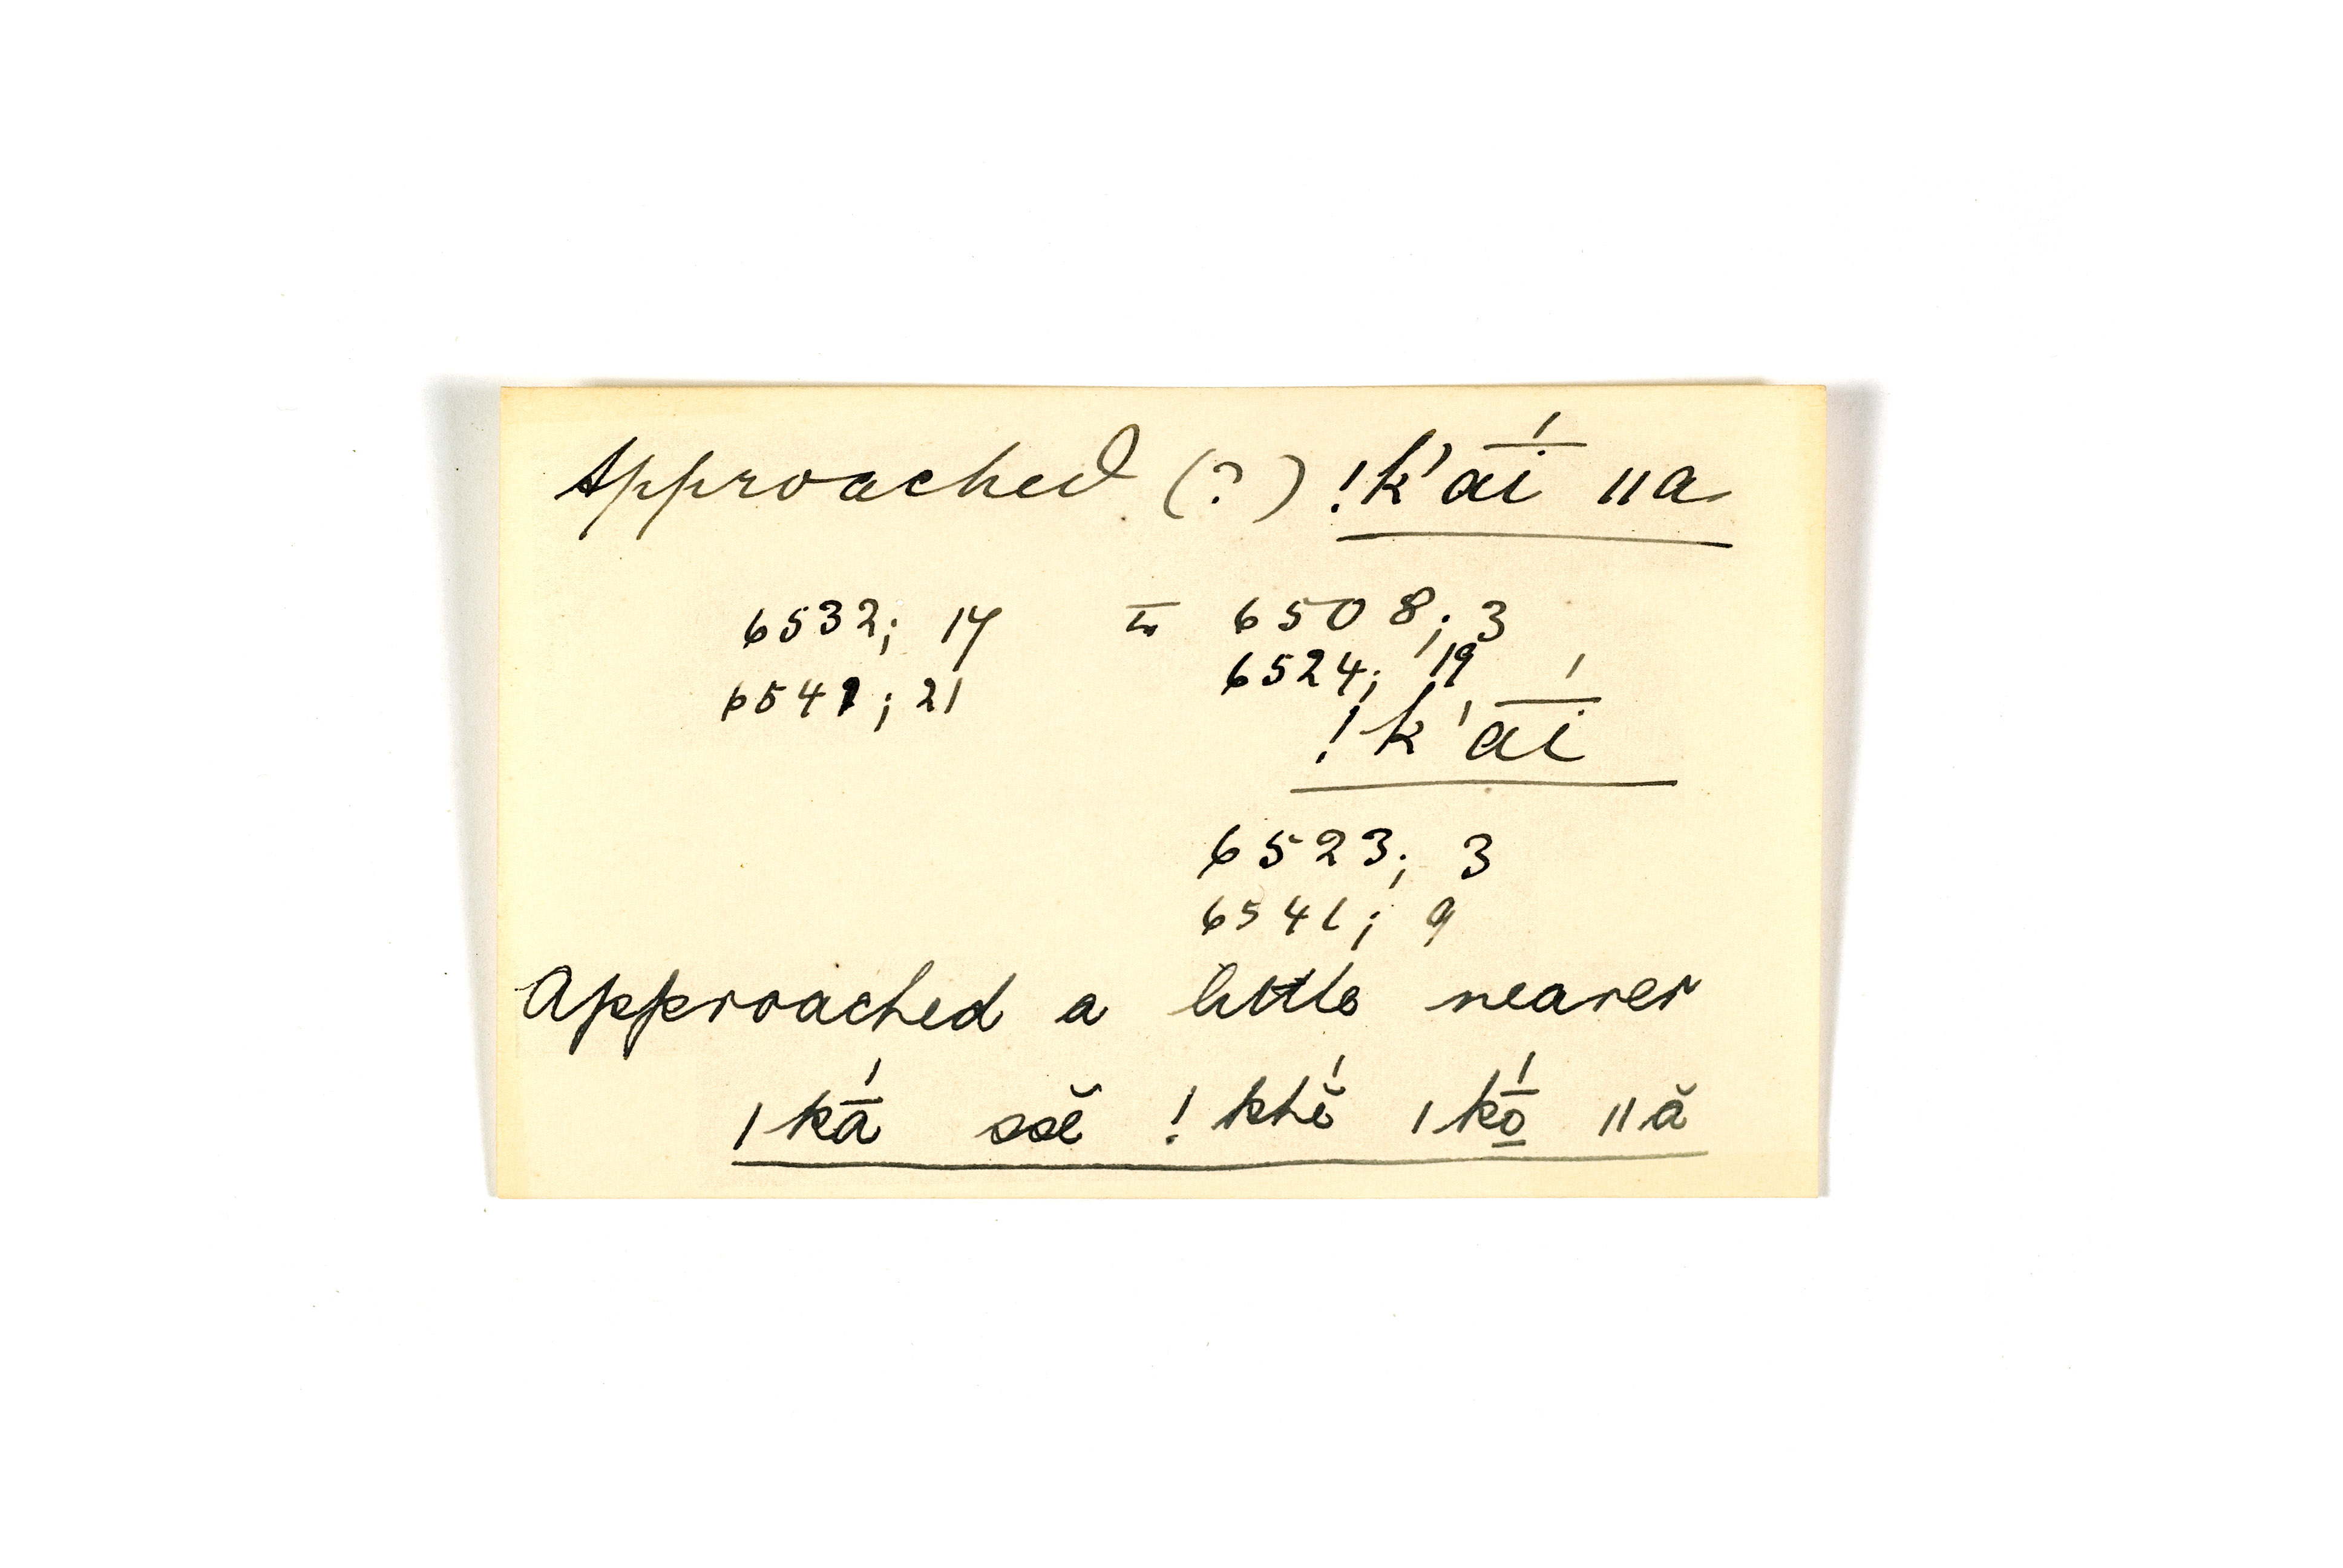 Approached (?) !k'a͞í ǁa
6532; 17 = 6508; 3
6541; 21 6524; 19
!k'a͞í
6523; 3
6541; 9
Approached a little nearer
ǀkā́ ssĕ !khĕ́ ǀkṓ̱ ǁă